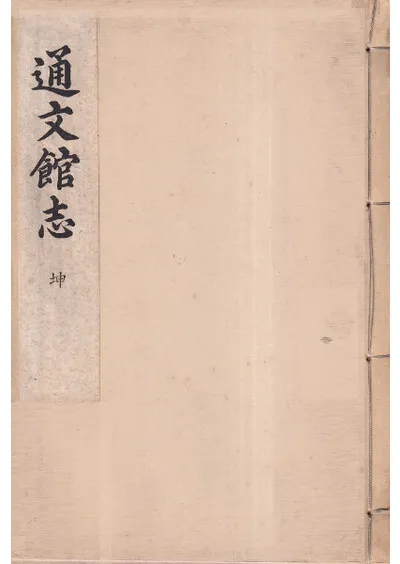 通文館志
坤